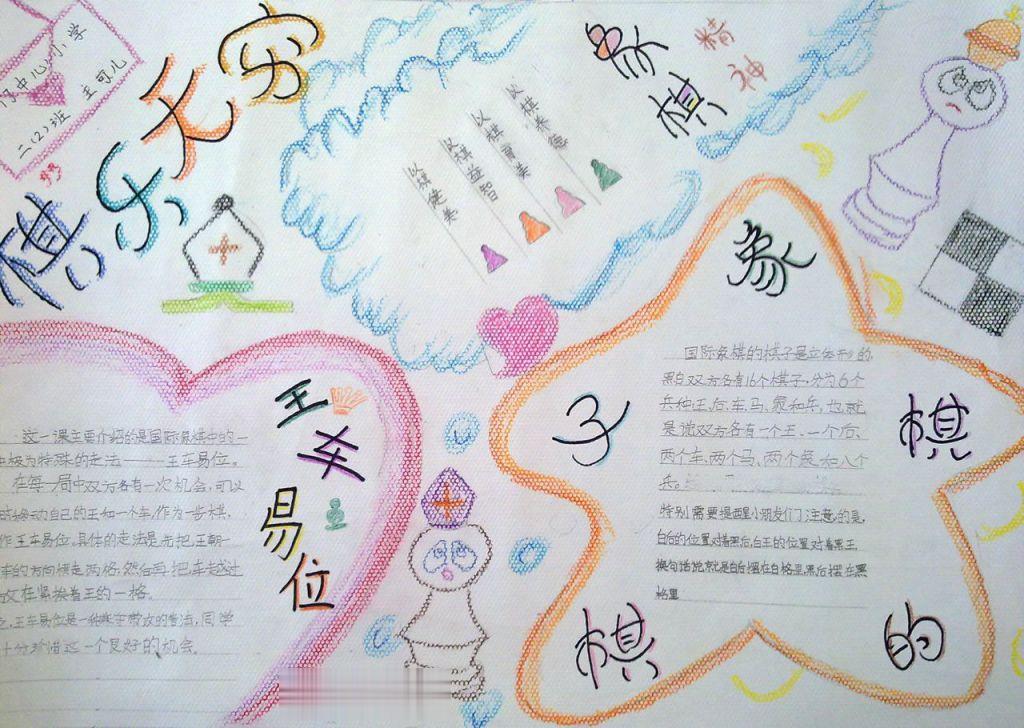 中心小学
二（2）班 王可儿
棋乐无穷
象棋
精神
以棋健美
以棋益智
以棋育美
以棋养德
王车易位
这一课主要介绍的是国际象棋中的一
极为特殊的走法——王车易位。
在每一局中双方各有一次机会，可以
移动自己的王和一个车，作为一步棋，
作王车易位。具体的走法是先把王朝
车的方向横走两格，然后再把车越过
放在紧挨着王的一格。
王车易位是一种
同学
十分珍惜这一个良好的机会。
象棋的棋子
国际象棋的棋子是立体形的
黑白双方各有16个棋子，分为6个
兵种王、后、车、马、象和兵，也就
是说双方各有一个王、一个后、
两个车、两个马、两个象和八个
兵。
特别需要提醒小朋友们注意的是，
白后的位置对着黑后，白王的位置对着黑王，
换句话说就是白后摆在白格里，黑后摆在黑
格里